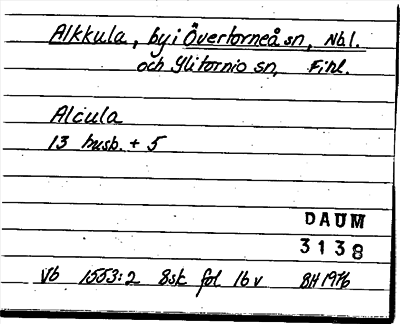 Alkkula, by i Övertorneå sn, Nbl.
och Ylitornio sn, Finl.
Alcula
13 husb. + 5
DAUM
3138
Vb 1553:2 8sk fol 16v BH 1976